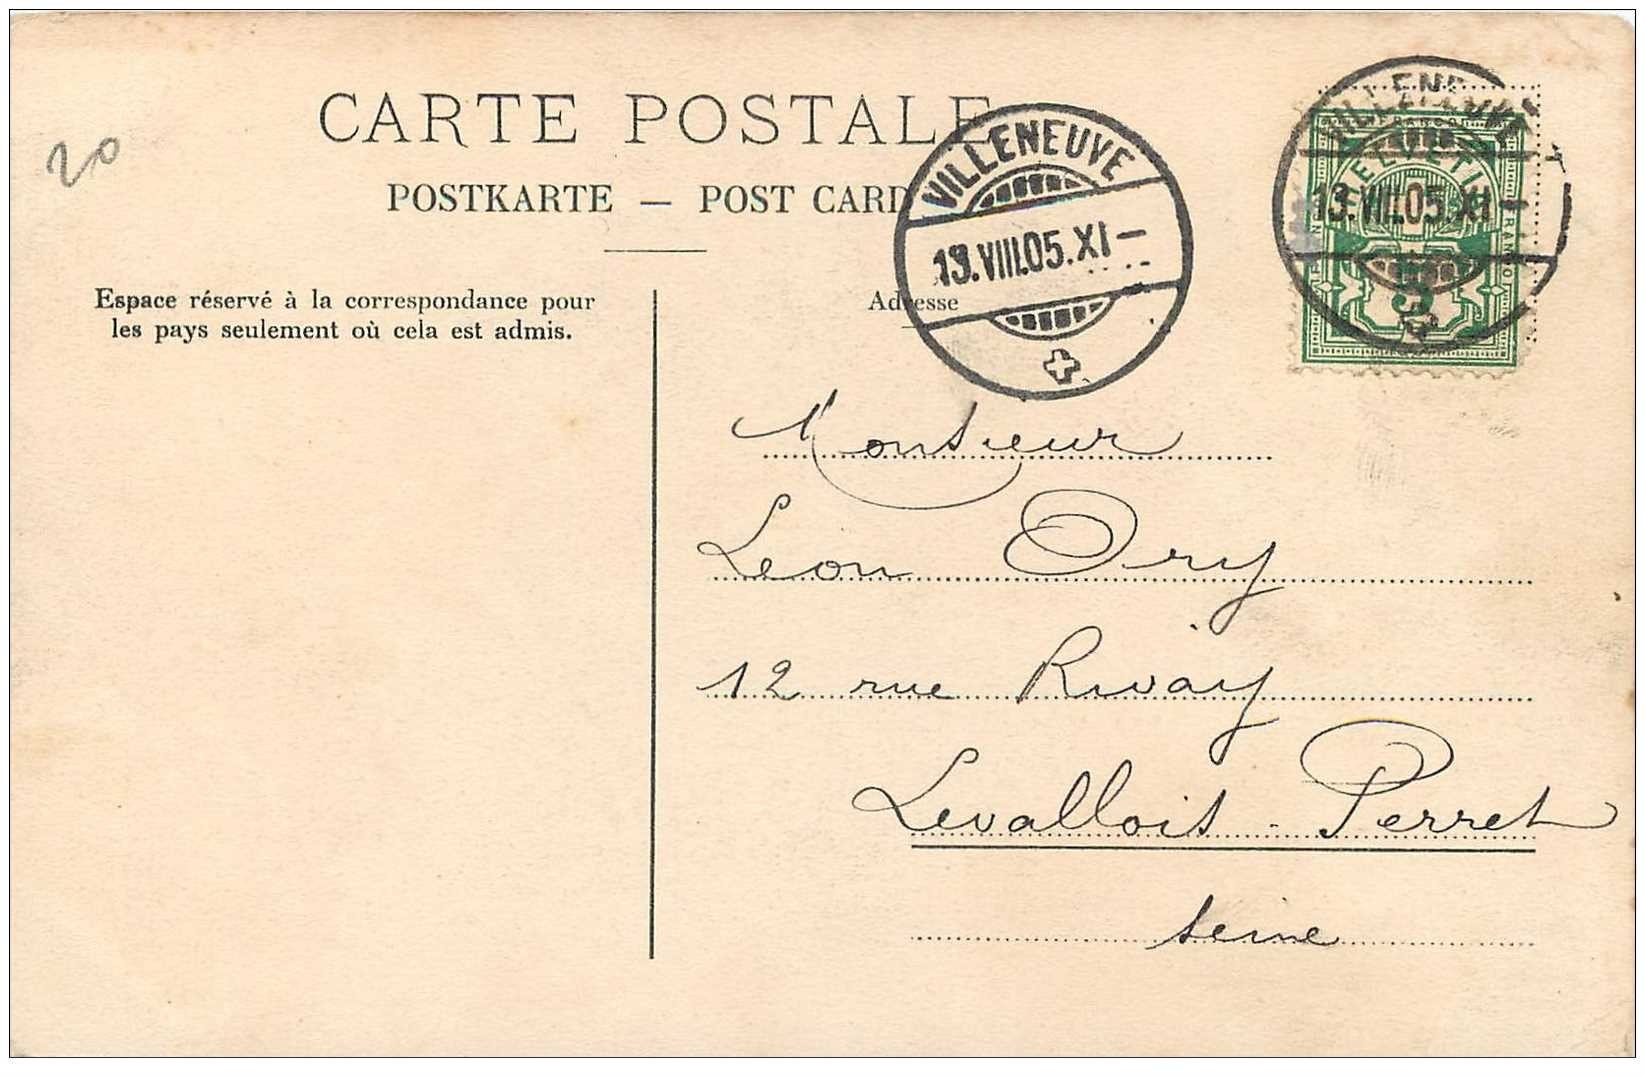 CARTE POSTALE
POSTKARTE — POST CARD
20
Espace réservé à la correspondance pour
les pays seulement où cela est admis.
Adresse
VILLENEUVE
13.VIII.05.XI–
VILLENEUVE
13.VIII.05.XI–
HELVETIA
FRANCO
5
Monsieur
Léon Ory
12 rue Rivay
Levallois-Perret
Seine